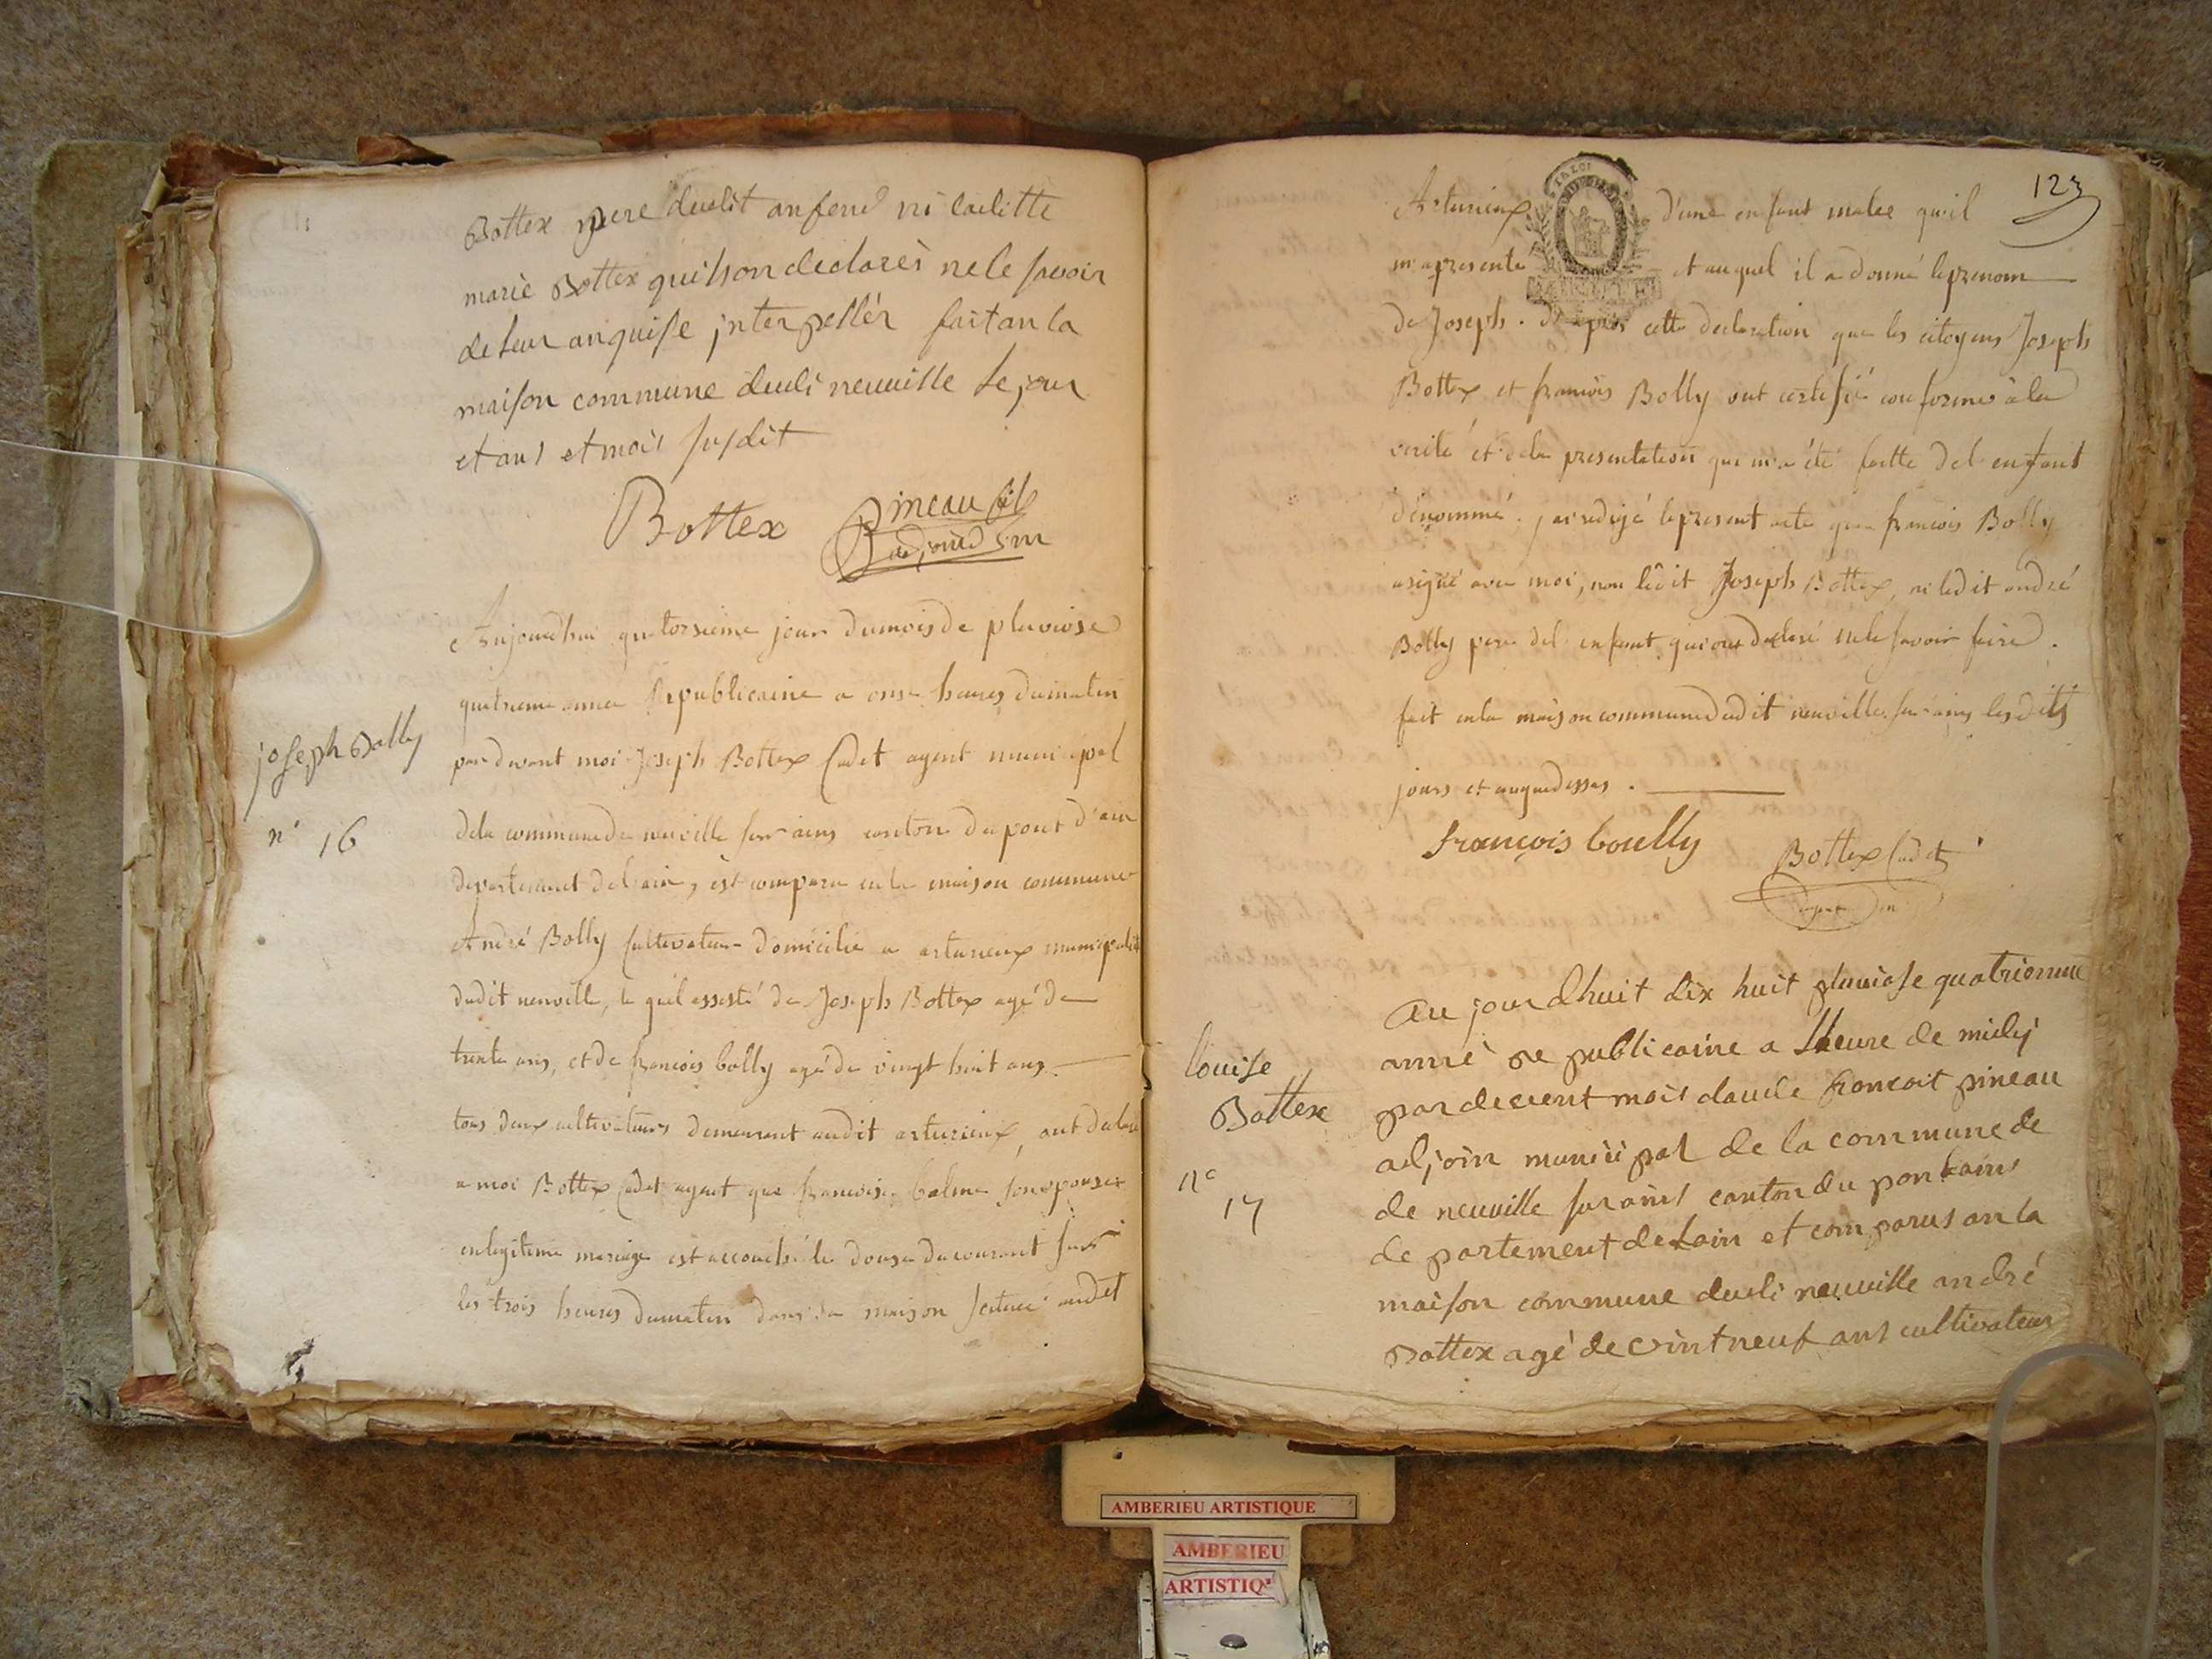 Bottex pere dudit anfend ni laditte
marie Bottex quihson declarès ne le savoir
de leur anquise jnterpellér fait an la
maison commune dudi neuville le jour
et ans et mois susdit
Bottex pineau fils
adjoind
Aujourdhui quatorsieme jour du mois de pluviose
quatrieme année Republicaine a onse heures du matin
joseph Bolly
pardevant moi Joseph Bottex Cadet agent municipal
n° 16
dela commune de neuville sur ains canton du pont d'ain
departement del'ain, est comparu en la maison commune
André Bolly Cultivateur domicilié a arturieux municipalité
dudit neuville, le quel assisté de Joseph Bottex agé de
trente ans, et de francois bolly agé de vingt huit ans
tous deux cultivateurs demeurant audit arturieux, ont declaré
a moi Bottex Cadet agent que francoise balme son epouse
en legitime mariage est accouché le douse du courant sur
les trois heures du matin dans sa maison scituée audit
123
Arturieux d'une enfant males qu'il
m'a presente et auquel il a donné le prenom
de Joseph. d'apres cette declaration que les citoyens Joseph
Bottex et francois Bolly ont certifié conforme à la
verité et dela presentation qui m'a été faitte del enfant
dénommé. j'ai redigé le present acte que francois Bolly
a signé avec moi, non ledit Joseph Bottex, ni ledit andré
Bolly pere del enfant qui ont declaré ne le savoir faire.
fait en la maison commune dudit neuville sur ains les dits
jours et an que dessus.
francois boully Bottex Cadet
agent
Au jourdhuit dix huit pluviose quatriemme
louise
Bottex
anné re publicaine a lheure de midy
par devent mois claude francoit pineau
adjoin municipal de la commune de
n°
17
de neuville sur ains canton du pon dains
de partement de lain et comparus an la
maison commune dudi neuville andré
Bottex agé de vint neuf ans cultivateur
AMBERIEU ARTISTIQUE
AMBERIEU
ARTISTIQ